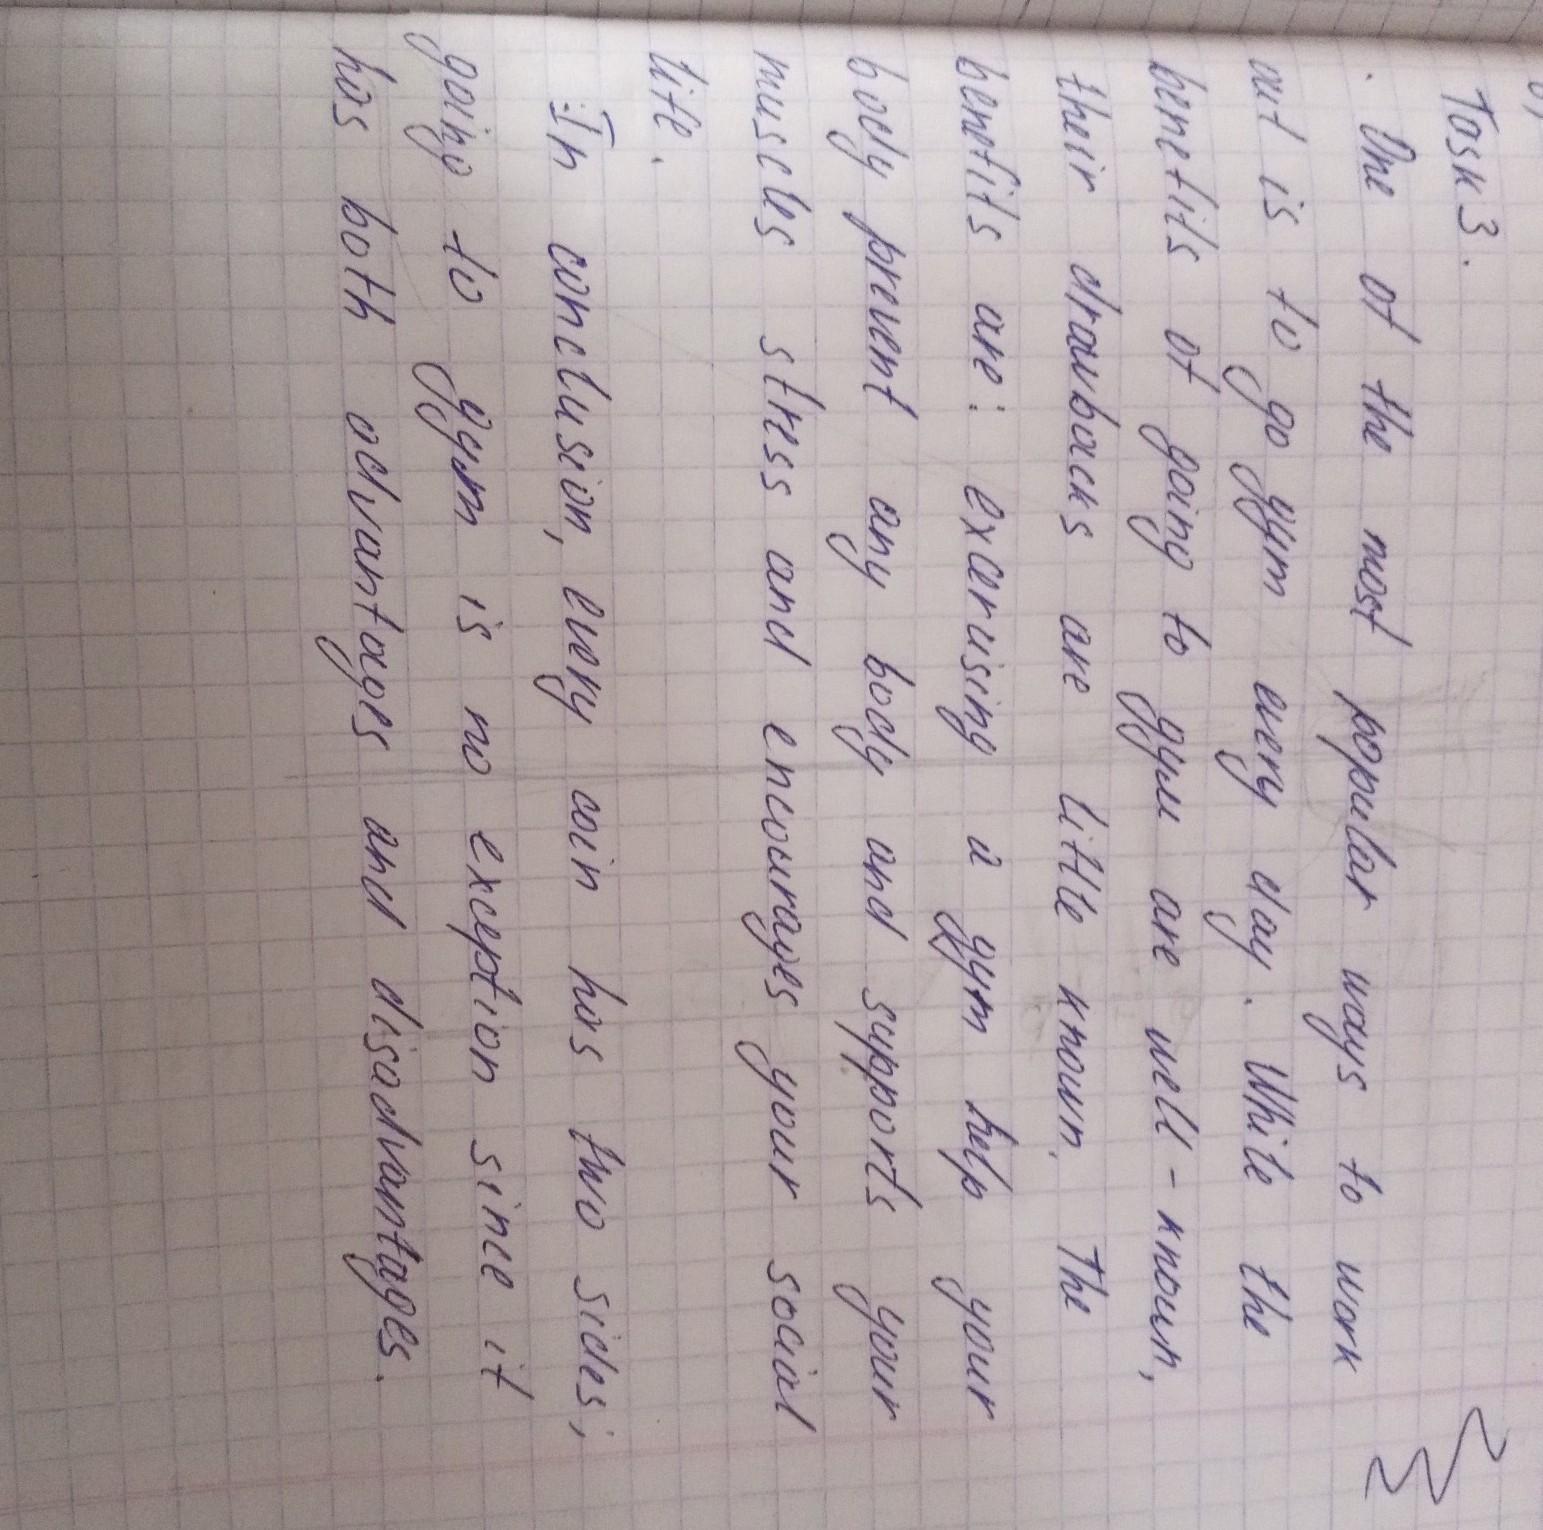 Task 3.
. One of the most popular ways to work
out is to go gym every day. While the
benefits of going to gym are well-known,
their drawbacks are little known. The
benefits are: excerusing a gym help your
body prevent any body and supports your
muscles stress and encourages your social
life.
In conclusion, every coin has two sides;
going to gym is no exception since it
has both advantages and disadvantages.